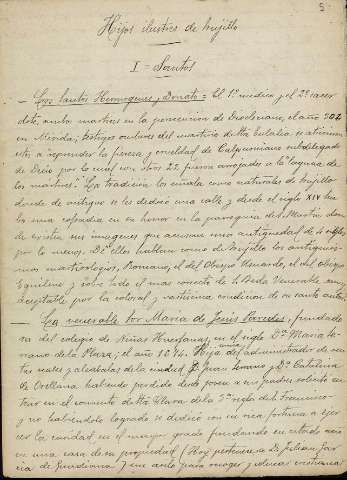 5
Hijos ilustres de Trujillo
I = Santos
— Los Santos Hermogenes y Donato = El 1º medico y el 2º sacer
dote, ambos martires en la persecucion de Diocleciano, el año 302
en Merida; testigos oculares del martirio de Sta Eulalia se atrevieron
a reprender la fiereza y crueldad de Calpurniano subdelegado
de Dacio por lo cual con otros 22 fueron arrojados a la "laguna de
los martires". La tradicion los señala como naturales de Trujillo
donde de antiguo se les dedicó una calle y desde el siglo XIV hu
bo una cofradia en su honor en la parroquia de S. Martin don
de existen sus imagenes que acusan una antiguedad de 4 siglos
por lo menos. De ellos hablan como de Trujillo los antiquisi
mos martirologios, Romano, el del Obispo Usuardo, el del obispo
Equilino y sobre todo el mas conocido de S. Beda Venerable muy
aceptable por la colosal y vastisima condicion de su santo autor.
— La venerable Sor Maria de Jesús Paredes, fundado
ra del colegio de Niñas Huerfanas, en el siglo Dª Maria
de la Plaza, el año 10 Hija del administrador de ren
tas reales y alcabalas de la ciudad, D. Juan y Dª Catalina
de Orellana habiendo perdido desde joven a sus padres solicitó en
trar en el convento de Sta Clara de la 3ª regla de S. Francisco
y no habiendolo logrado se dedicó con su rica fortuna a ejer
cer la caridad en el mayor grado fundando en
en una casa de su propiedad (Hoy pertenece a D. Julian Gar
cia de Guadiana) un asilo para recoger y educar cristiana